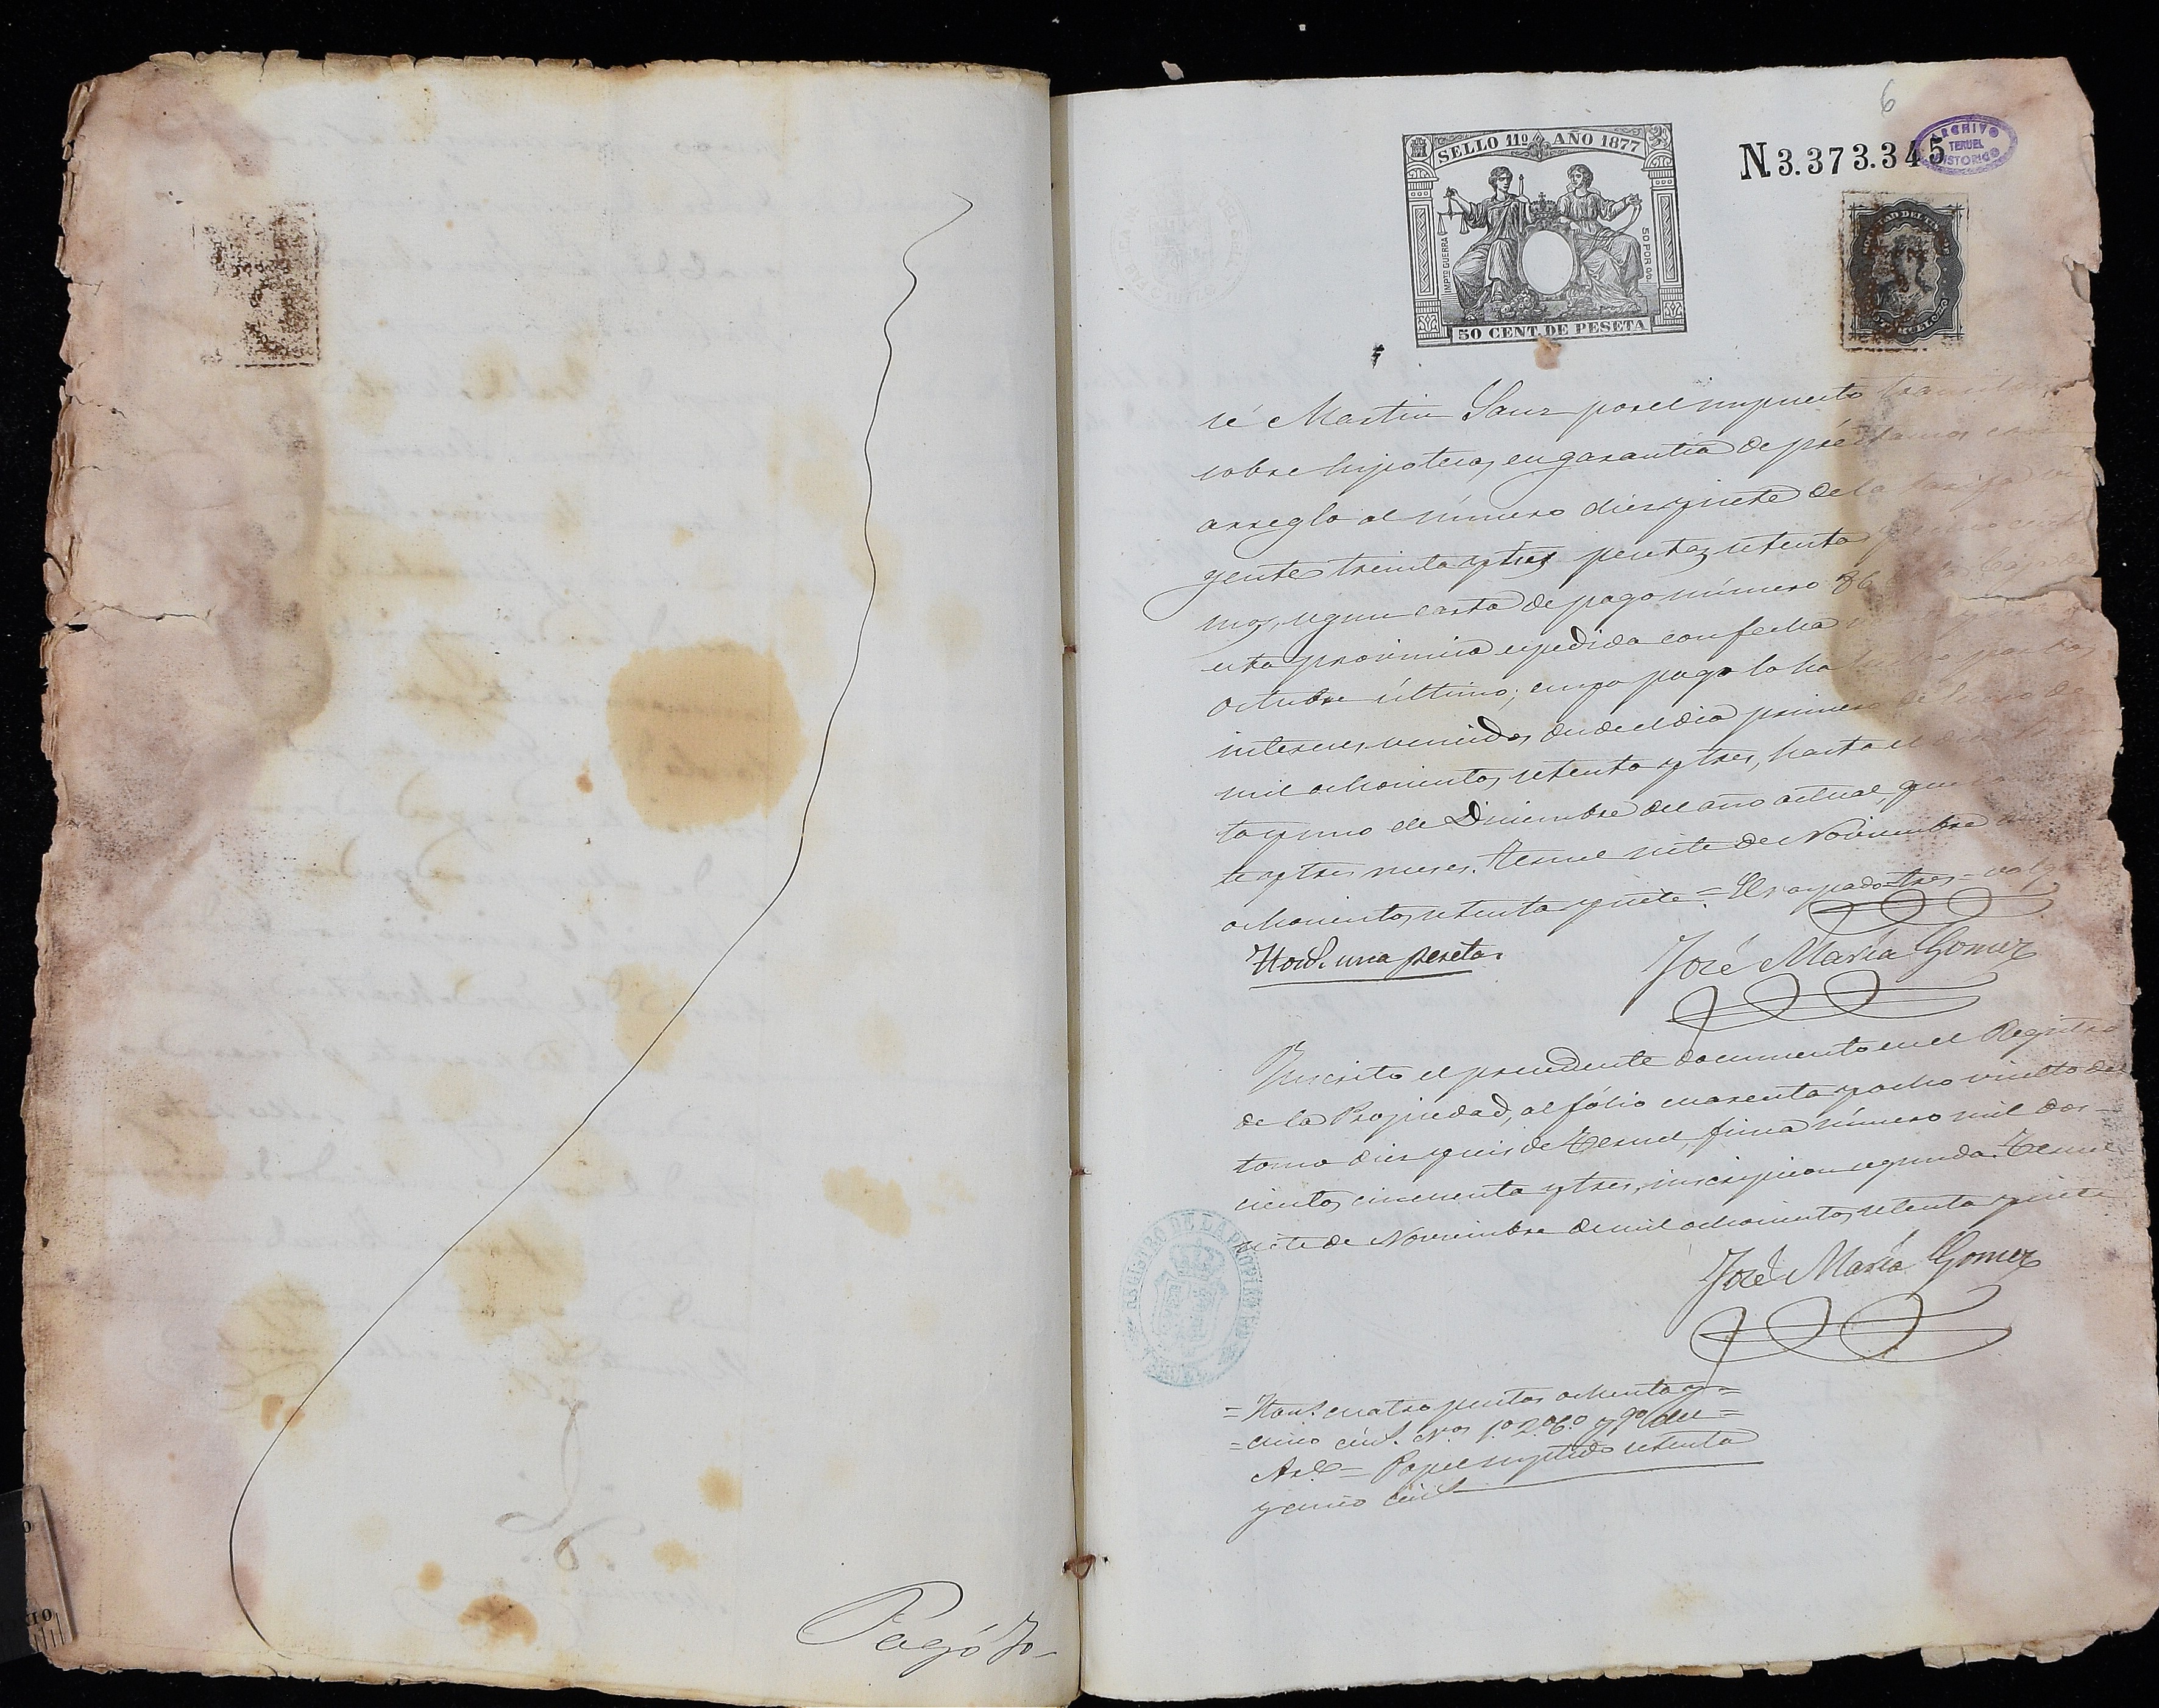 Pagó Jo-
6
SELLO 11º AÑO 1877
IMPTO GUERRA
50 POR 00.
50 CENT. DE PESETA
N 3.373.345
ARCHIVO
TERUEL
HISTORICO
sé Martin Sanz por el impuesto
sobre hipotecas, en garantia de préstamos con
arreglo al número diez y siete de la tarifa vi
gente treinta y tres pesetas setenta
mos, segun carta de pago número
esta provincia expedida con fecha
octubre último; cuyo pago lo ha hecho por los
intereses vencidos desde el dia primero de Enero de
mil ochocientos setenta y tres, hasta el
ta y uno de Diciembre del año actual, que
te y tres meses. Teruel siete de Noviembre
ochocientos setenta y siete = El raspado = tres = valga
Hon.s una peseta.
José María Gomez
Inscrito el precedente documento en el Registro
de la Propiedad, al fólio cuarenta y ocho vuelto del
tomo diez y seis de Teruel, finca número mil dos-
cientos cincuenta y tres, inscripcion segunda. Teruel
siete de Noviembre de mil ochocientos setenta y siete
José María Gomez
REGISTRO DE LA PROPIEDAD
= Hon.s cuatro pesetas ochenta y =
= cinco cént. Nos 1º 2º 6º y 9º del =
Arl = Papel suplido setenta
y cinco cént.